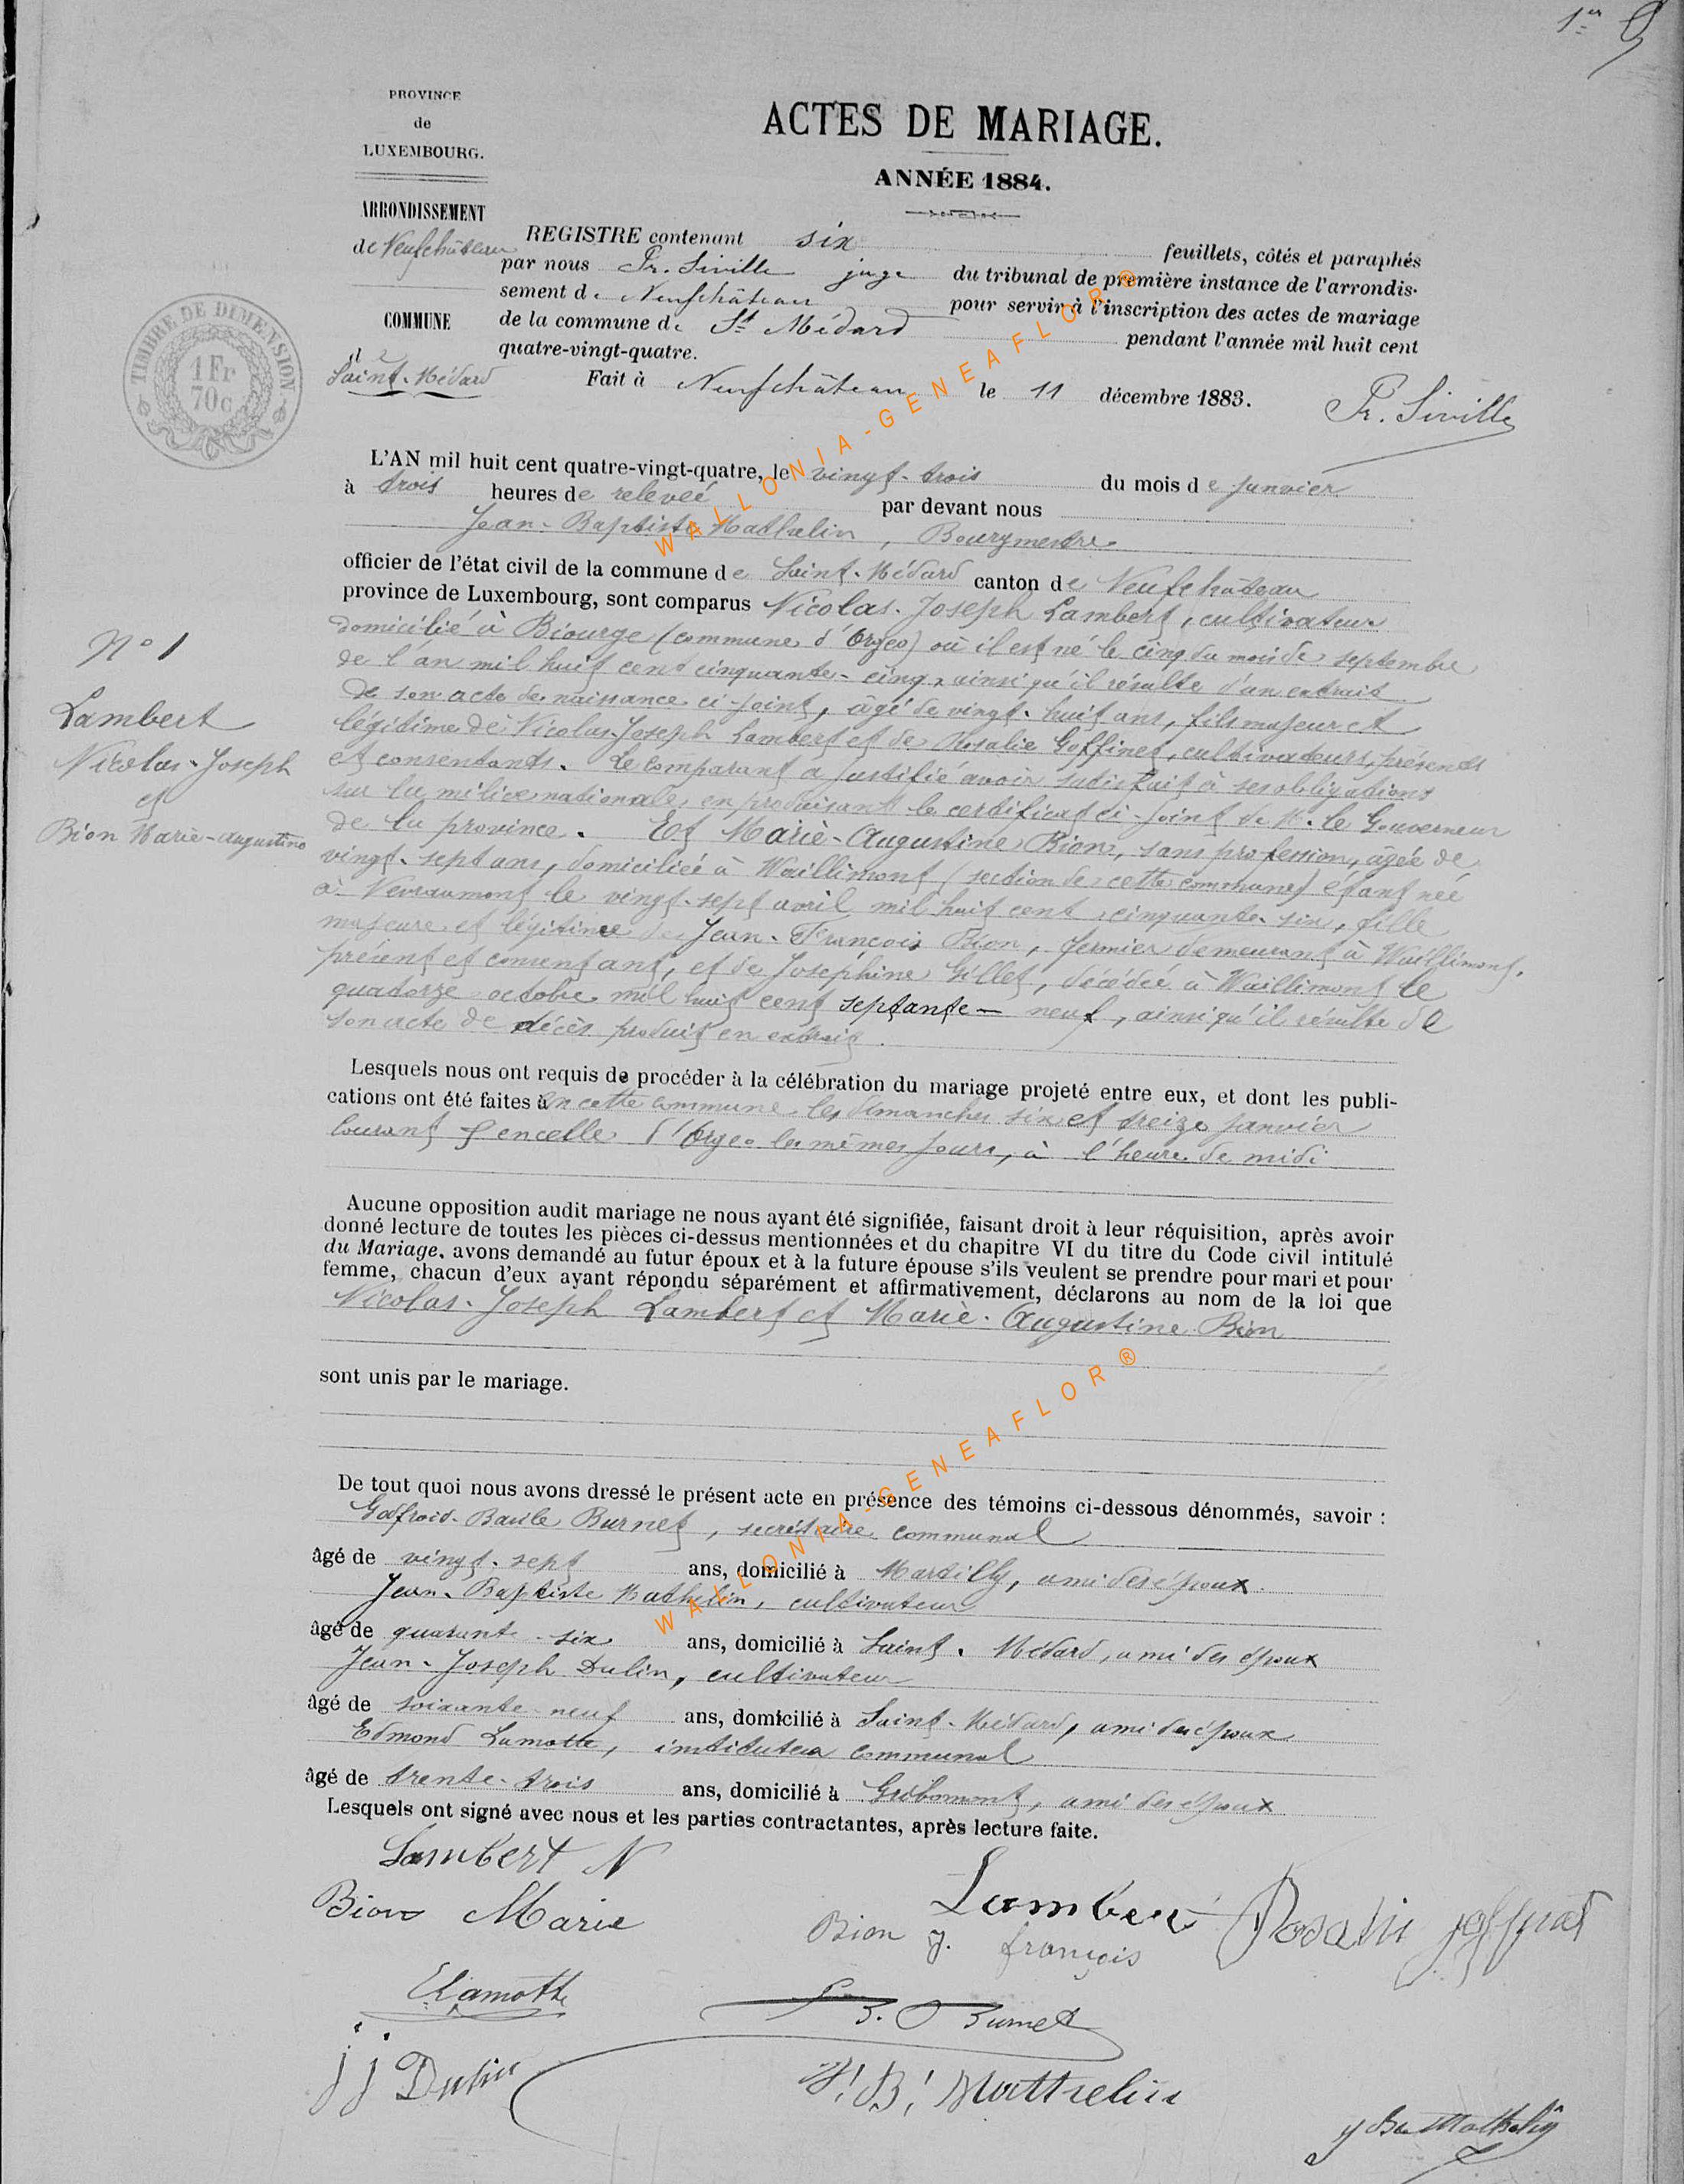 1er
PROVINCE
de
LUXEMBOURG.
ARRONDISSEMENT
de Neufchâteau
COMMUNE
de
Saint-Médard
TIMBRE DE DIMENSION
1 Fr
70c
ACTES DE MARIAGE.
ANNÉE 1884.
REGISTRE contenant six feuillets, côtés et paraphés
par nous Pr. Siville juge du tribunal de première instance de l'arrondis-
sement de Neufchâteau pour servir à l'inscription des actes de mariage
de la commune de St Médard pendant l'année mil huit cent
quatre-vingt-quatre.
Fait à Neufchâteau le 11 décembre 1883.
Pr. Siville
L'AN mil huit cent quatre-vingt-quatre, le vingt-trois du mois de janvier
à trois heures de relevée par devant nous
Jean-Baptiste Mathelin, Bourgmestre
officier de l'état civil de la commune de Saint-Médard canton de Neufchâteau
province de Luxembourg, sont comparus Nicolas-Joseph Lambert, cultivateur
domicilié à Biourge (commune d'Orgeo) où il est né le cinq du mois de septembre
de l'an mil huit cent cinquante-cinq, ainsi qu'il résulte d'un extrait
de son acte de naissance ci-joint, âgé de vingt-huit ans, fils majeur et
légitime de Nicolas-Joseph Lambert et de Rosalie Goffinet, cultivateurs, présents
et consentants. Le comparant a justifié avoir satisfait à ses obligations
sur la milice nationale, en produisant le certificat ci-joint de M. le Gouverneur
de la province. Et Marie-Augustine Bion, sans profession, âgée de
vingt-sept ans, domiciliée à Waillimont (section de cette commune) étant née
à Nevraumont le vingt-sept avril mil huit cent cinquante-six, fille
majeure et légitime de Jean-François Bion, fermier demeurant à Waillimont,
présent et consentant, et de Joséphine Gillet, décédée à Waillimont le
quatorze octobre mil huit cent septante-neuf, ainsi qu'il résulte de
son acte de décès produit en extrait.
N° 1
Lambert
Nicolas-Joseph
et
Bion Marie-Augustine
Lesquels nous ont requis de procéder à la célébration du mariage projeté entre eux, et dont les publi-
cations ont été faites à en cette commune les dimanches six et treize janvier
courant & en celle d'Orgeo les mêmes jours, à l'heure de midi
Aucune opposition audit mariage ne nous ayant été signifiée, faisant droit à leur réquisition, après avoir
donné lecture de toutes les pièces ci-dessus mentionnées et du chapitre VI du titre du Code civil intitulé
du Mariage, avons demandé au futur époux et à la future épouse s'ils veulent se prendre pour mari et pour
femme, chacun d'eux ayant répondu séparément et affirmativement, déclarons au nom de la loi que
Nicolas-Joseph Lambert et Marie-Augustine Bion
sont unis par le mariage.
De tout quoi nous avons dressé le présent acte en présence des témoins ci-dessous dénommés, savoir :
Godfroid-Basile Burnet, secrétaire communal
âgé de vingt-sept ans, domicilié à Martilly, ami des époux
Jean-Baptiste Mathelin, cultivateur
âgé de quarante-six ans, domicilié à Saint-Médard, ami des époux
Jean-Joseph Dulin, cultivateur
âgé de soixante-neuf ans, domicilié à Saint-Médard, ami des époux
Edmond Lamotte, instituteur communal
âgé de trente-trois ans, domicilié à Gribomont, ami des époux
Lesquels ont signé avec nous et les parties contractantes, après lecture faite.
Lambert N
Bion Marie
Lambert
Rosali
Bion J. françois
E Lamotte
B. Burnet
j j Dulin
J. B. Mathelin
J Bte Mathelin
WALLONIA-GENEAFLOR®
WALLONIA-GENEAFLOR®